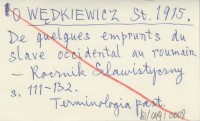 WĘDKIEWICZ St. 1915.
De quelques emprunts du
slave occidental au roumain.
– Rocznik Slawistyczny
s. 111-132.
Terminologia past.